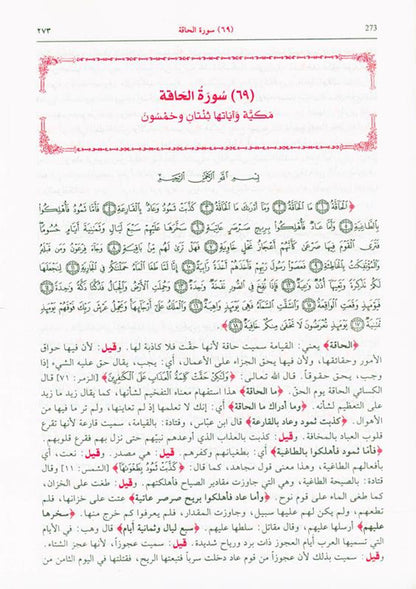 273 (٦٩) سورة الحاقة ٢٧٣
(٦٩) سُورَةُ الحَاقة
مَكيَّة وآياتها ثِنْتَانِ وخَمْسُونَ
بِسْمِ اللَّهِ الرَّحْمَنِ الرَّحِيمِ
﴿الْحَاقَّةُ ۝١ مَا الْحَاقَّةُ ۝٢ وَمَا أَدْرَاكَ مَا الْحَاقَّةُ ۝٣ كَذَّبَتْ ثَمُودُ وَعَادٌ بِالْقَارِعَةِ ۝٤ فَأَمَّا ثَمُودُ فَأُهْلِكُوا
بِالطَّاغِيَةِ ۝٥ وَأَمَّا عَادٌ فَأُهْلِكُوا بِرِيحٍ صَرْصَرٍ عَاتِيَةٍ ۝٦ سَخَّرَهَا عَلَيْهِمْ سَبْعَ لَيَالٍ وَثَمَانِيَةَ أَيَّامٍ حُسُومًا
فَتَرَى الْقَوْمَ فِيهَا صَرْعَى كَأَنَّهُمْ أَعْجَازُ نَخْلٍ خَاوِيَةٍ ۝٧ فَهَلْ تَرَى لَهُمْ مِنْ بَاقِيَةٍ ۝٨ وَجَاءَ فِرْعَوْنُ وَمَنْ قَبْلَهُ
وَالْمُؤْتَفِكَاتُ بِالْخَاطِئَةِ ۝٩ فَعَصَوْا رَسُولَ رَبِّهِمْ فَأَخَذَهُمْ أَخْذَةً رَابِيَةً ۝١٠ إِنَّا لَمَّا طَغَى الْمَاءُ حَمَلْنَاكُمْ فِي الْجَارِيَةِ ۝١١ لِنَجْعَلَهَا
لَكُمْ تَذْكِرَةً وَتَعِيَهَا أُذُنٌ وَاعِيَةٌ ۝١٢ فَإِذَا نُفِخَ فِي الصُّورِ نَفْخَةٌ وَاحِدَةٌ ۝١٣ وَحُمِلَتِ الْأَرْضُ وَالْجِبَالُ فَدُكَّتَا دَكَّةً وَاحِدَةً ۝١٤
فَيَوْمَئِذٍ وَقَعَتِ الْوَاقِعَةُ ۝١٥ وَانْشَقَّتِ السَّمَاءُ فَهِيَ يَوْمَئِذٍ وَاهِيَةٌ ۝١٦ وَالْمَلَكُ عَلَى أَرْجَائِهَا وَيَحْمِلُ عَرْشَ رَبِّكَ فَوْقَهُمْ يَوْمَئِذٍ
ثَمَانِيَةٌ ۝١٧ يَوْمَئِذٍ تُعْرَضُونَ لَا تَخْفَى مِنْكُمْ خَافِيَةٌ ۝١٨﴾
﴿الحاقة﴾ يعني: القيامة سميت حاقة لأنها حقَّت فلا كاذبة لها. وقيل: لأن فيها حواق
الأمور وحقائقها، ولأن فيها يحق الجزاء على الأعمال، أي: يجب، يقال حق عليه الشيء إذا
وجب، يحق حقوقاً. قال الله تعالى: ﴿وَلَكِنْ حَقَّتْ كَلِمَةُ الْعَذَابِ عَلَى الْكَافِرِينَ﴾ [الزمر: ٧١] قال
الكسائي الحاقة يوم الحق. ﴿ما الحاقة﴾ هذا استفهام معناه التفخيم لشأنها، كما يقال زيد ما زيد
على التعظيم لشأنه. ﴿وما أدراك ما الحاقة﴾ أي: إنك لا تعلمها إذ لم تعاينها، ولم تر ما فيها من
الأهوال. ﴿كذبت ثمود وعاد بالقارعة﴾ قال ابن عباس، وقتادة: بالقيامة، سميت قارعة لأنها تقرع
قلوب العباد بالمخافة. وقيل: كذبت بالعذاب الذي أوعدهم نبيهم حتى نزل بهم فقرع قلوبهم.
﴿فأما ثمود فأهلكوا بالطاغية﴾ أي: بطغيانهم وكفرهم. قيل: هي مصدر. وقيل: نعت، أي
بأفعالهم الطاغية، وهذا معنى قول مجاهد، كما قال: ﴿كَذَّبَتْ ثَمُودُ بِطَغْوَاهَا﴾ [الشمس: ١١] وقال
قتادة: بالصيحة الطاغية، وهي التي جاوزت مقادير الصياح فأهلكتهم. وقيل: طغت على الخزان،
كما طغى الماء على قوم نوح. ﴿وأما عاد فأهلكوا بريح صرصر عاتية﴾ عتت على خزانها، فلم
تطعهم، ولم يكن لهم عليها سبيل، وجاوزت المقدار، فلم يعرفوا كم خرج منها. ﴿سخرها
عليهم﴾ أرسلها عليهم، وقال مقاتل: سلطها عليهم. ﴿سبع ليال وثمانية أيام﴾ قال وهب: هي الأيام
التي تسميها العرب أيام العجوز ذات برد ورياح شديدة. قيل: سميت عجوزاً، لأنها عجز الشتاء.
وقيل: سميت بذلك لأن عجوزاً من قوم عاد دخلت سرباً فتبعتها الريح، فقتلتها في اليوم الثامن من